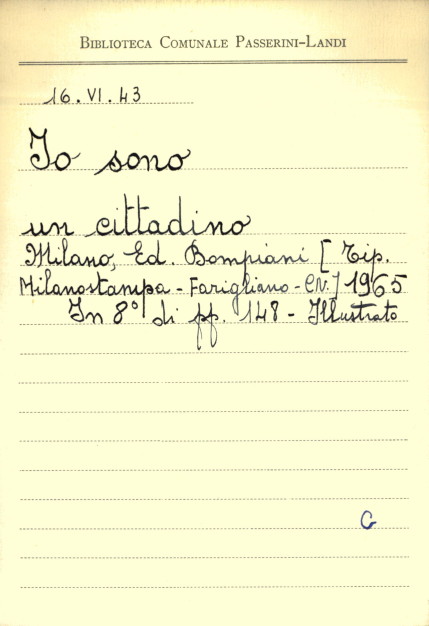 BIBLIOTECA COMUNALE PASSERINI-LANDI
16.VI.43
Io sono
un cittadino
Milano, Ed. Bompiani [Tip.
Milanostampa - Farigliano - CN.] 1965
In 8° di pp. 148 - Illustrato
G